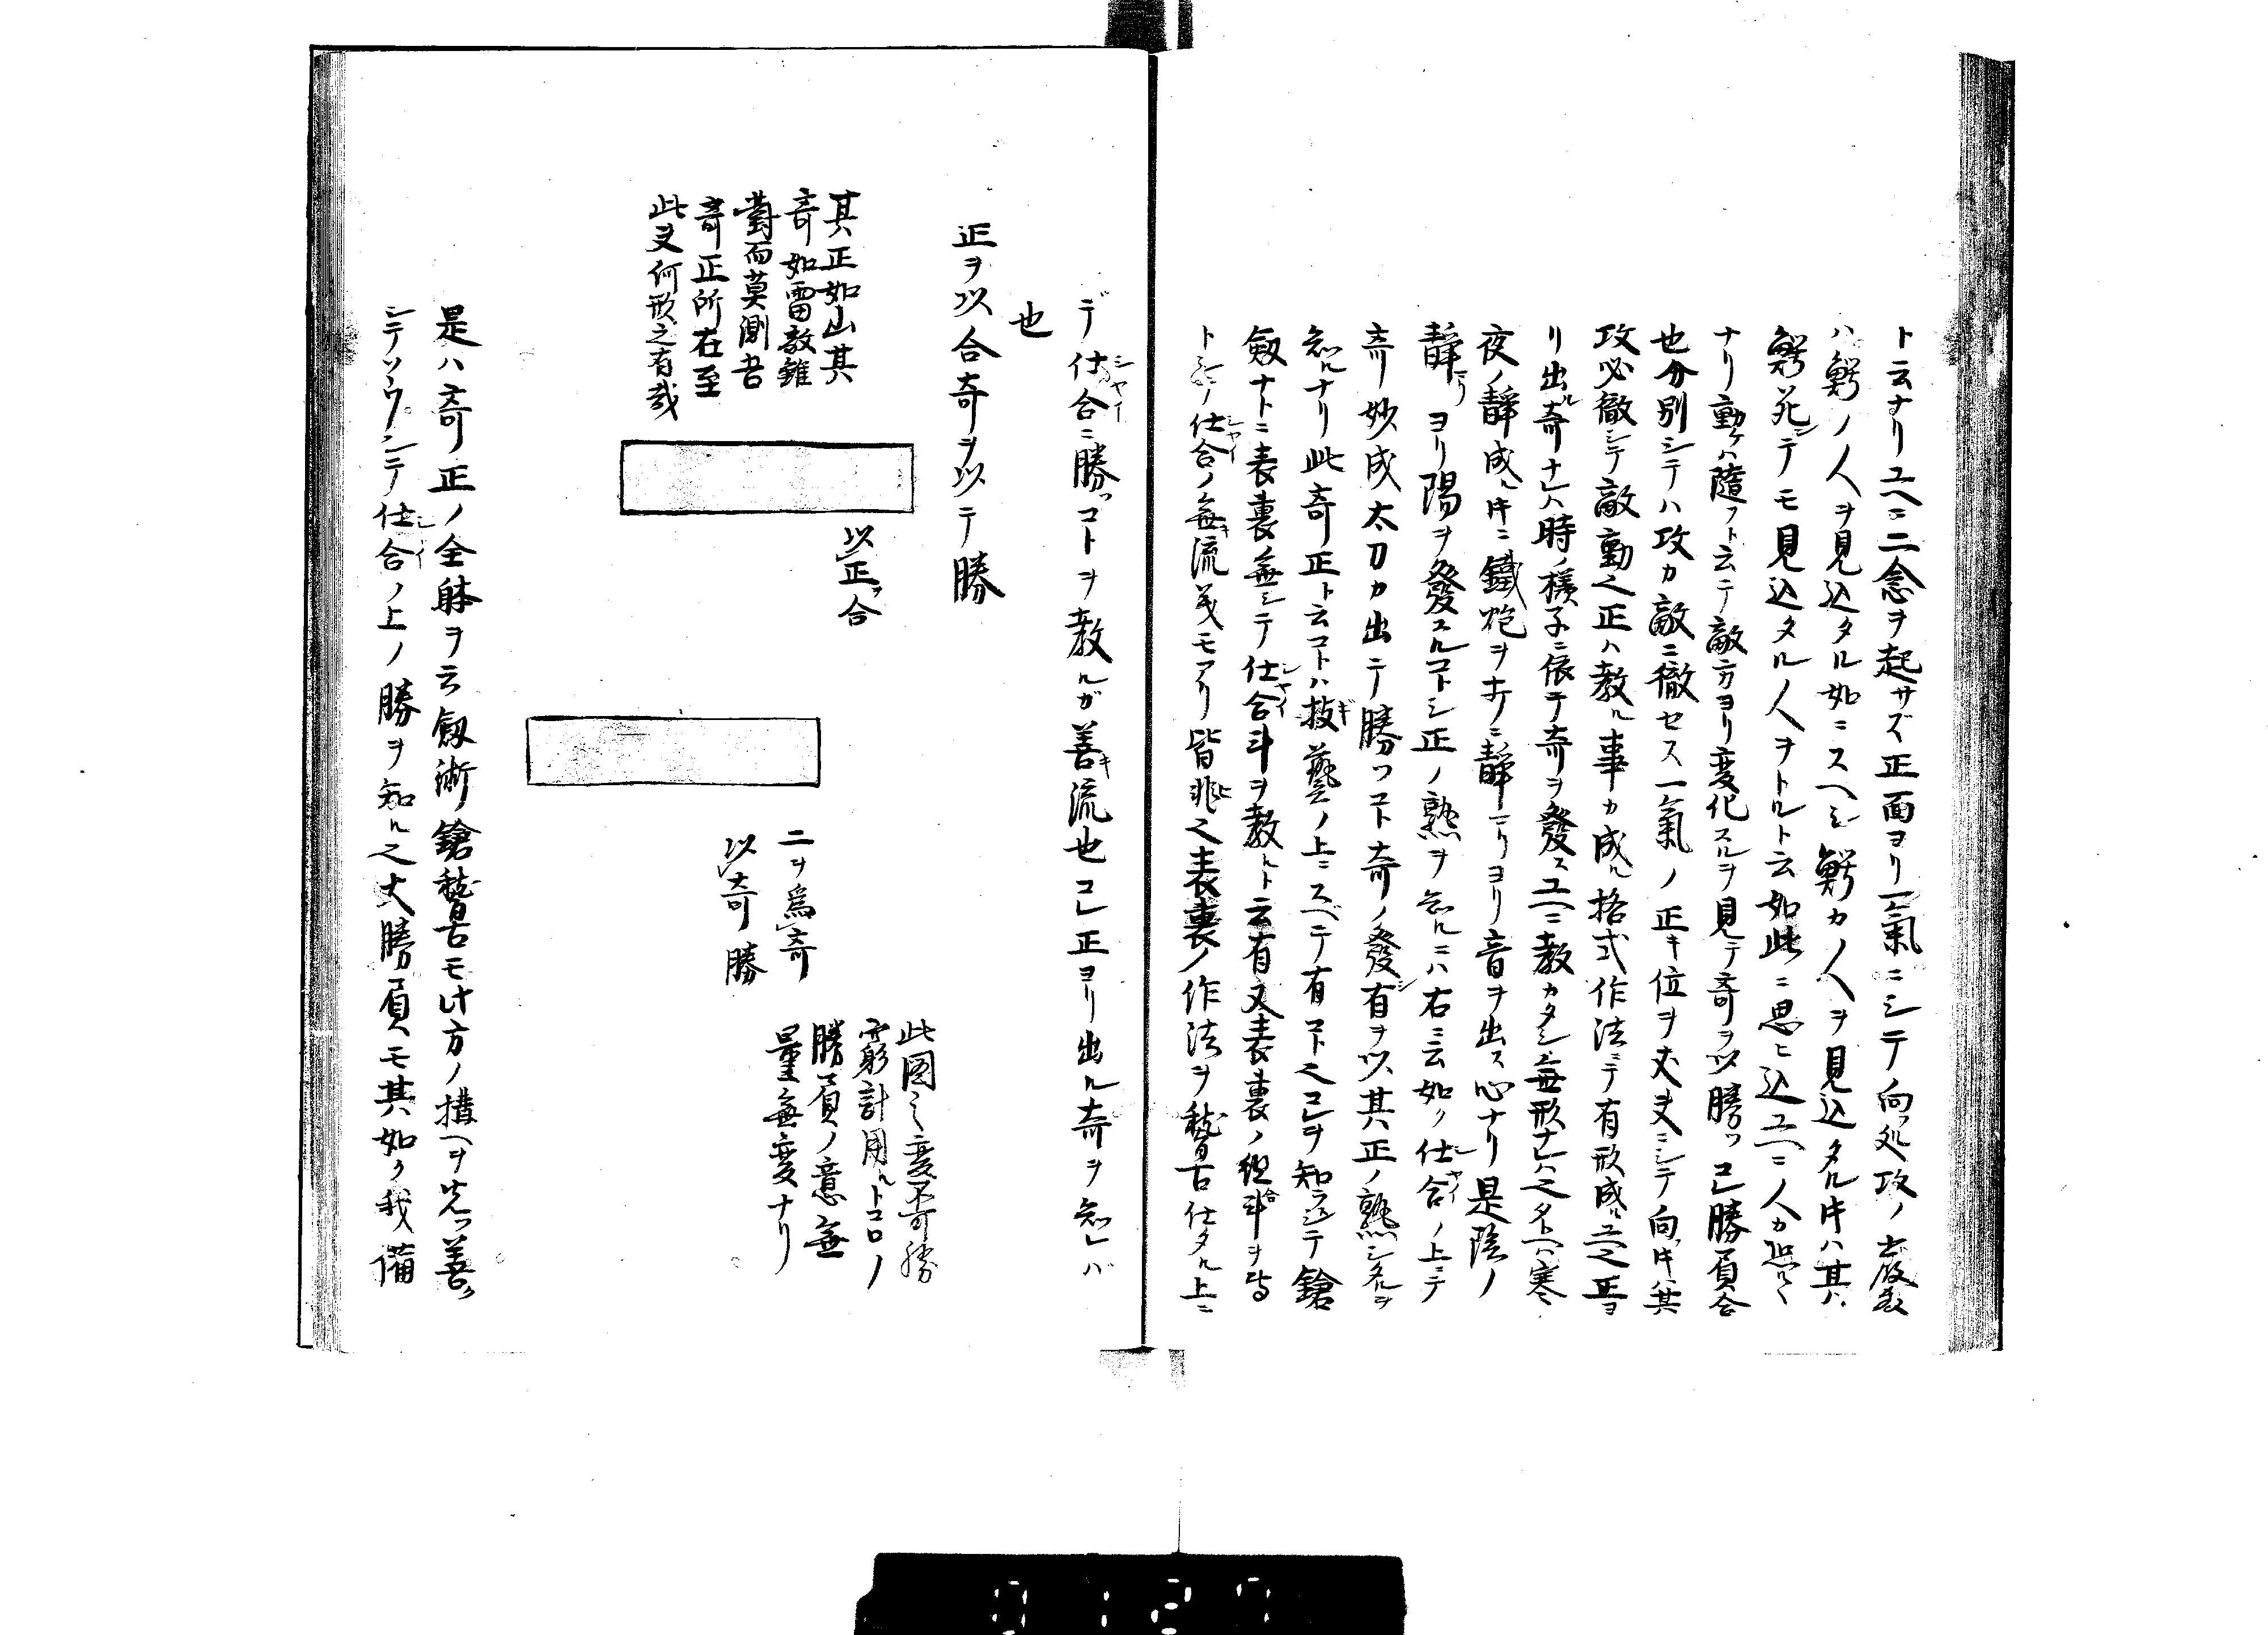 ト云ナリユヘニ二念ヲ起サズ正面ヨリ一氣ニシテ向フ処攻ノ
ハ鰐ノ人ヲ見込タル如ニスヘシ鰐カノ人ヲ見込タル时ハ其
鰐死シテモ見込タル人ヲトルト云如此ニ思ヒ込ユヘニ人カ恐ルヽ
ナリ動ケハ隨フト云テ敵方ヨリ変化スルヲ見テ奇ヲ以勝ツコレ勝負合
也分別シテハ攻カ敵ニ徹セス一氣ノ正キ位ヲ丈夫ニシテ向時ハ其
攻必徹シテ敵動之正ハ教ル事カ成ル格式作法ニテ有形成ニ之正ヨ
リ出ル奇ナレハ時ノ樣子ニ依テ奇ヲ發スユヘニ教カタシ無形ナレハ之タトヘハ寒
夜ノ靜成ル时ニ鐵炮ヲ打ニ靜ニリヨリ音ヲ出ス心ナリ是陰ノ
靜ニリヨリ陽ヲ發スルコトシ正ノ熟ヲ知ルニハ右ニ云如ク仕合シヤイノ上ニテ
奇妙成太刀カ出テ勝ツコト奇ノ發シ有ヲ以其正ノ熟シタルヲ
知ルナリ此奇正ト云コトハ技ギ藝ノ上ニスヘテ有コト之コレヲ知ラシテ鎗
劔ナトニ表裏無シテ仕合シヤイ斗ヲ教ルト云有又表裏ノ組合斗ヲ
仕合シヤイノ無キ流義モアリ皆非之表裏ノ作法ヲ稽古仕タル上ニ
デ仕合シヤイニ勝ツコトヲ教ルガ善キ流也コレ正ヨリ出ル奇ヲ知レバ
也
正ヲ以合奇ヲ以テ勝
其正如山其
奇如雷敵雖
對而莫測吾
奇正所在至
此又何形之有哉
以正合
二ヲ爲奇
以奇勝
此図之変不可勝
窮計用ルトコロノ
勝負ノ意無
量無変ナリ
是ハ奇正ノ全躰ヲ云劔術鎗稽古モ此方ノ構ヘヲ先ツ善ク
シテソウシテ仕合シヤイノ上ノ勝ヲ知ル之大勝負モ其如ク我備